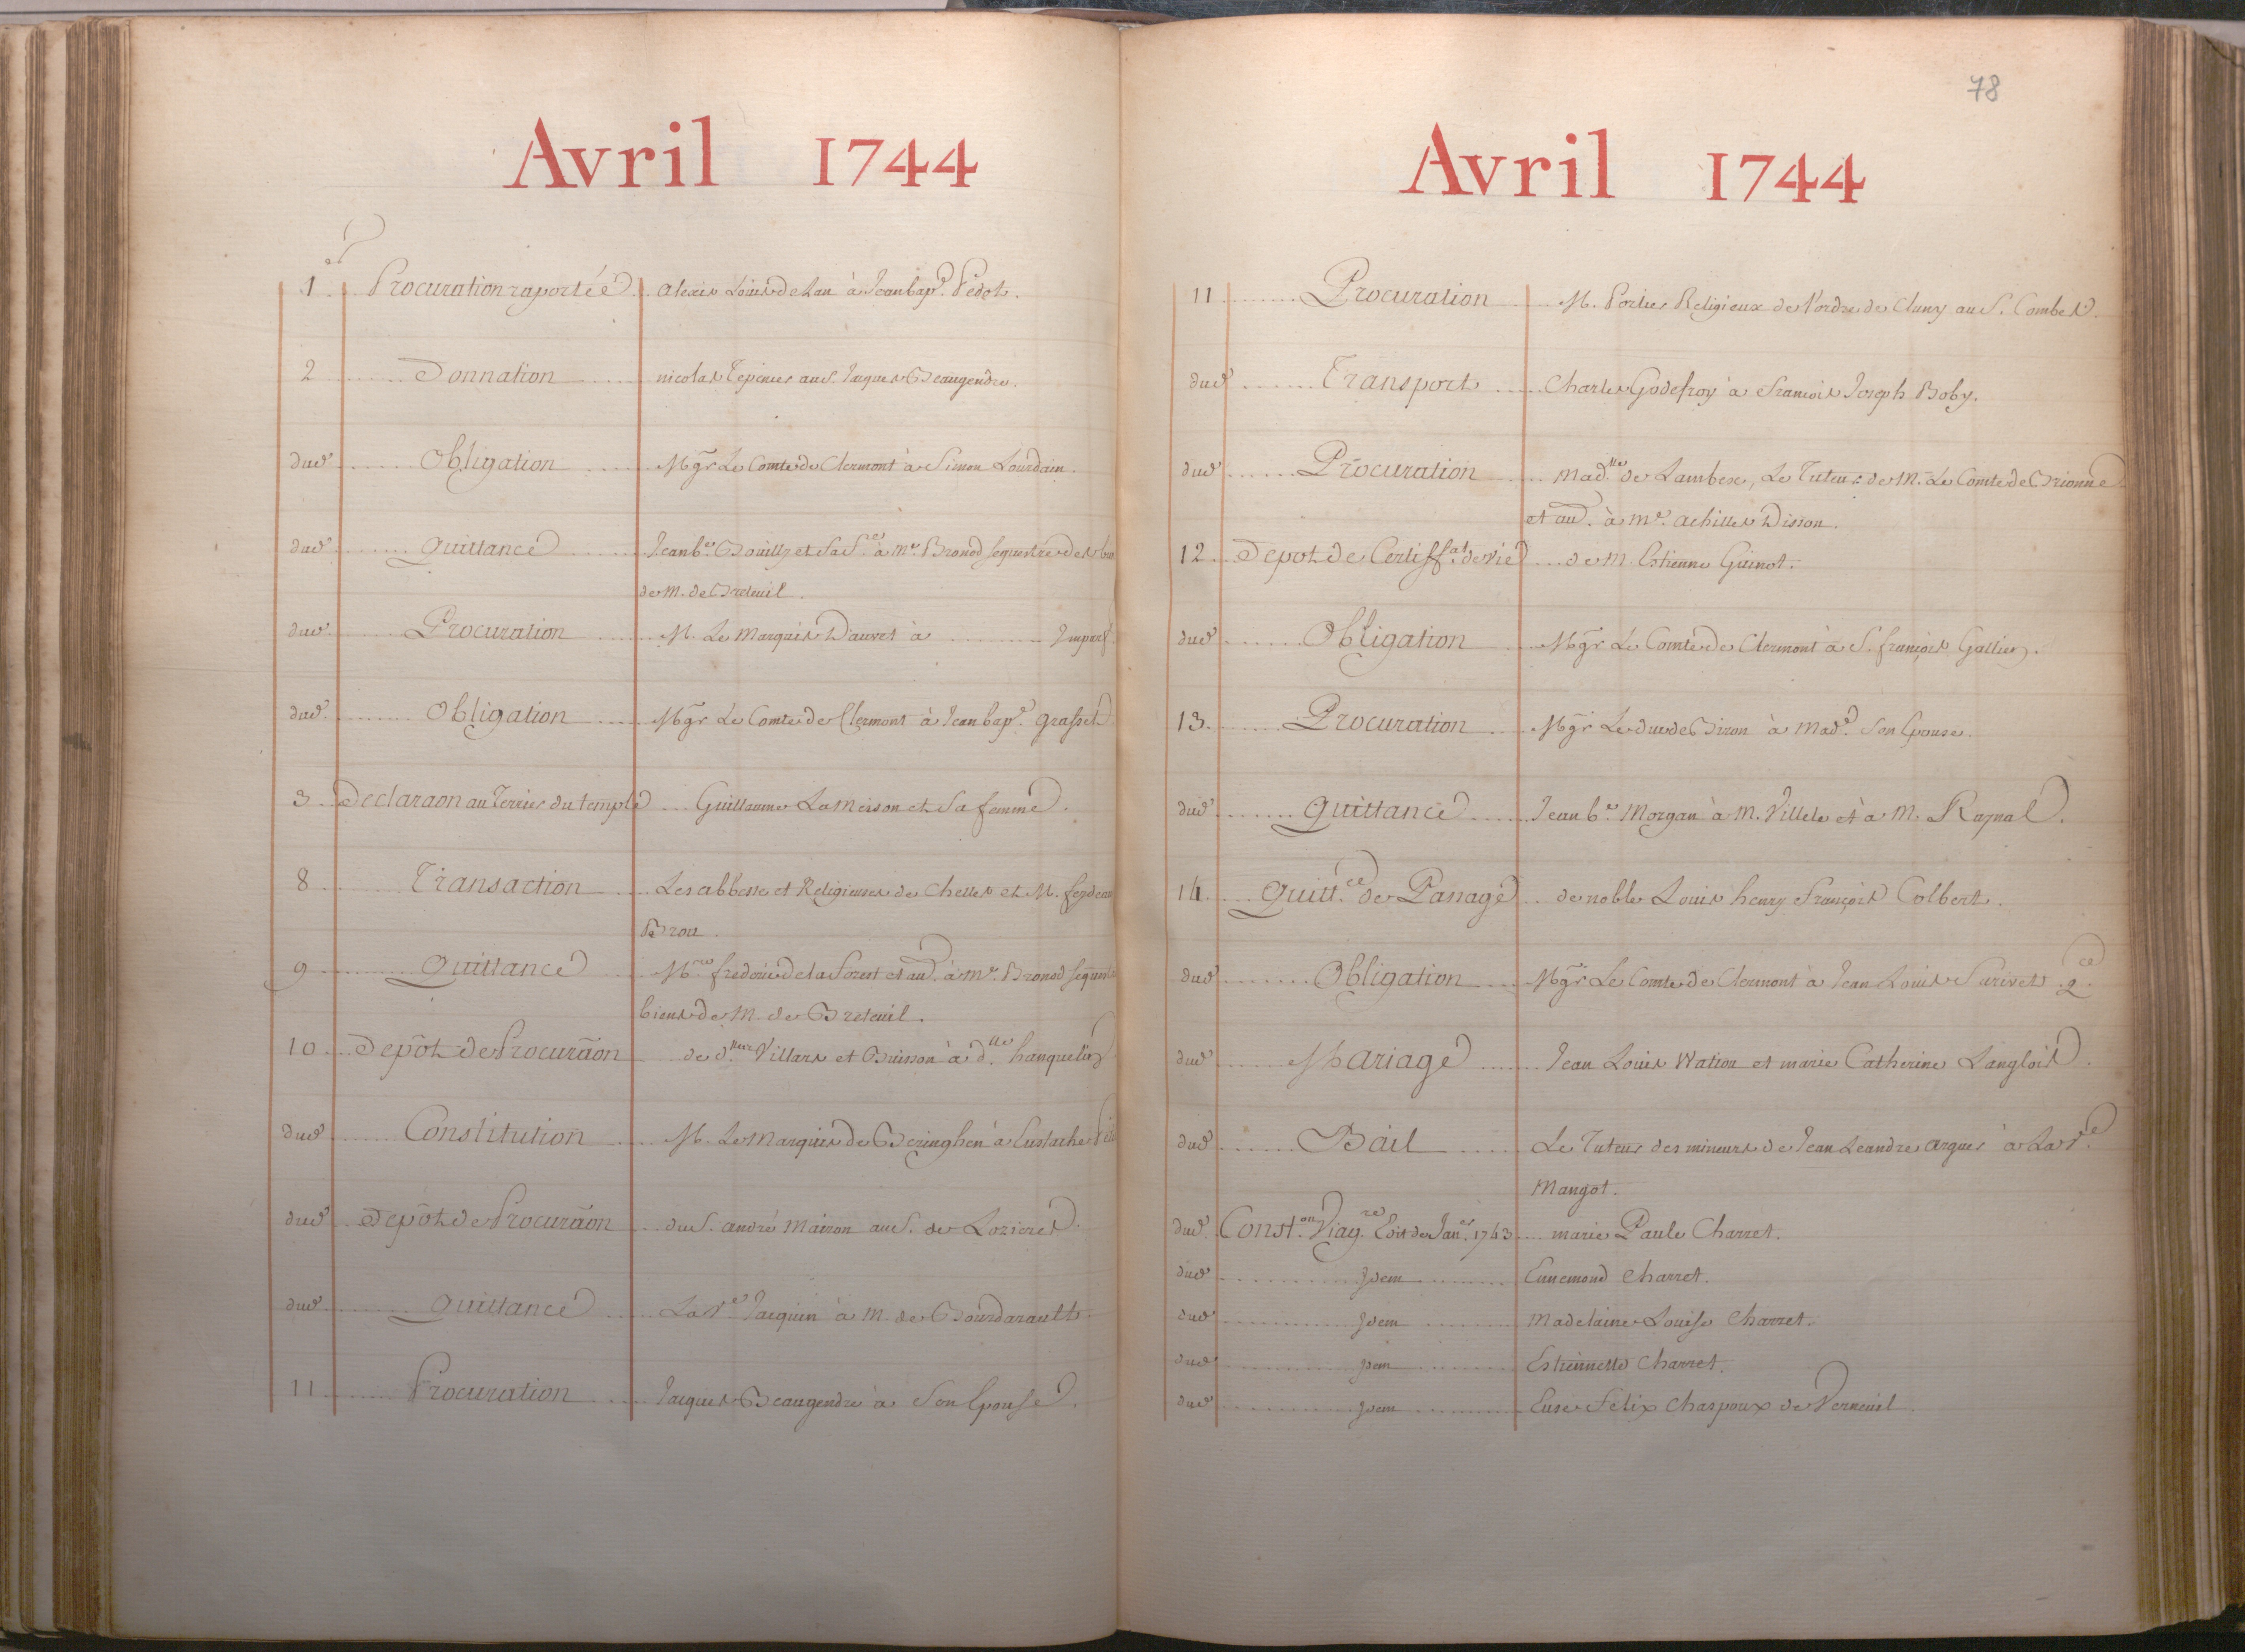 Avril 1744
1 Procuration raportée Alexis Louis Delan à Jean bap.e Pedot.
2 Donnation nicolas Tepenier au S. Jacques Beaugendre.
dud. Obligation Mgr Le Comte de Clermont à Simon Lourdain.
dud. Quittance Jean b.e Bouilly et Sa à Me. Bronod sequestre des
de M. de Breteuil.
dud. Procuration M. Le Marquis Dauvet à Imparf
dud. Obligation Mgr Le Comte de Clermont à Jean bap.e Grasset
3 Declaraon au Terrier du temple Guillaume Lameison et Sa femme.
8 Transaction Les abbesse et Religieuses de Chelles et M. feydeau
Brou.
9 Quittance frederic de la Forest et au. à Me. Bronod sequest
biens de M. de Breteuil.
10 Depôt de Procuraon de d.lles Villars et Buisson à d.lle hanquelin
dud. Constitution M. Le Marquis de Beringhen à Eustache
dud. Depôt de Procuraon du S. andré Mairon au S. de Lozieres
dud. Quittance La Ve. Jacquin à M. de Bourdarault.
11 Procuration Jacques Beaugendre à Son Epouse.
78
Avril 1744
11 Procuration M. Portier Religieux de l'ordre de Cluny au S. Combes.
dud. Transport Charles Godefroy à François Joseph Boby.
dud. Procuration Mad.lle de Lambesc, Le Tuteur de M. Le Comte de Brionne
et au. à Me. achilles Disson.
12 Depot de Certiff.at de vie de M. Estienne Guinot.
dud. Obligation Mgr Le Comte de Clermont à S. françois Gallien.
13 Procuration Mgr Le duc de Biron à Mad.e Son Epouse.
dud. Quittance Jean b.e Morgan à M. Villele et à M. Raynal.
14 Quitt.ce de Panage de noble Louis henry François Colbert.
dud. Obligation Mgr Le Comte de Clermont à Jean Louis Surivet. q.ce
dud. Mariage Jean Louis Wation et marie Catherine Langlois.
dud. Bail Le Tuteur des mineurs de Jean Leandre arguer à La Ve.
Mangot.
dud. Const.on Viag.re Edit de Jan.er 1743 marie Paule Charret.
dud. Idem Ennemond Charret.
dud. Idem Madelaine Louise Charret.
dud. Idem Estiennette Charret.
dud. Idem Felix Chaspoux de Verneuil.